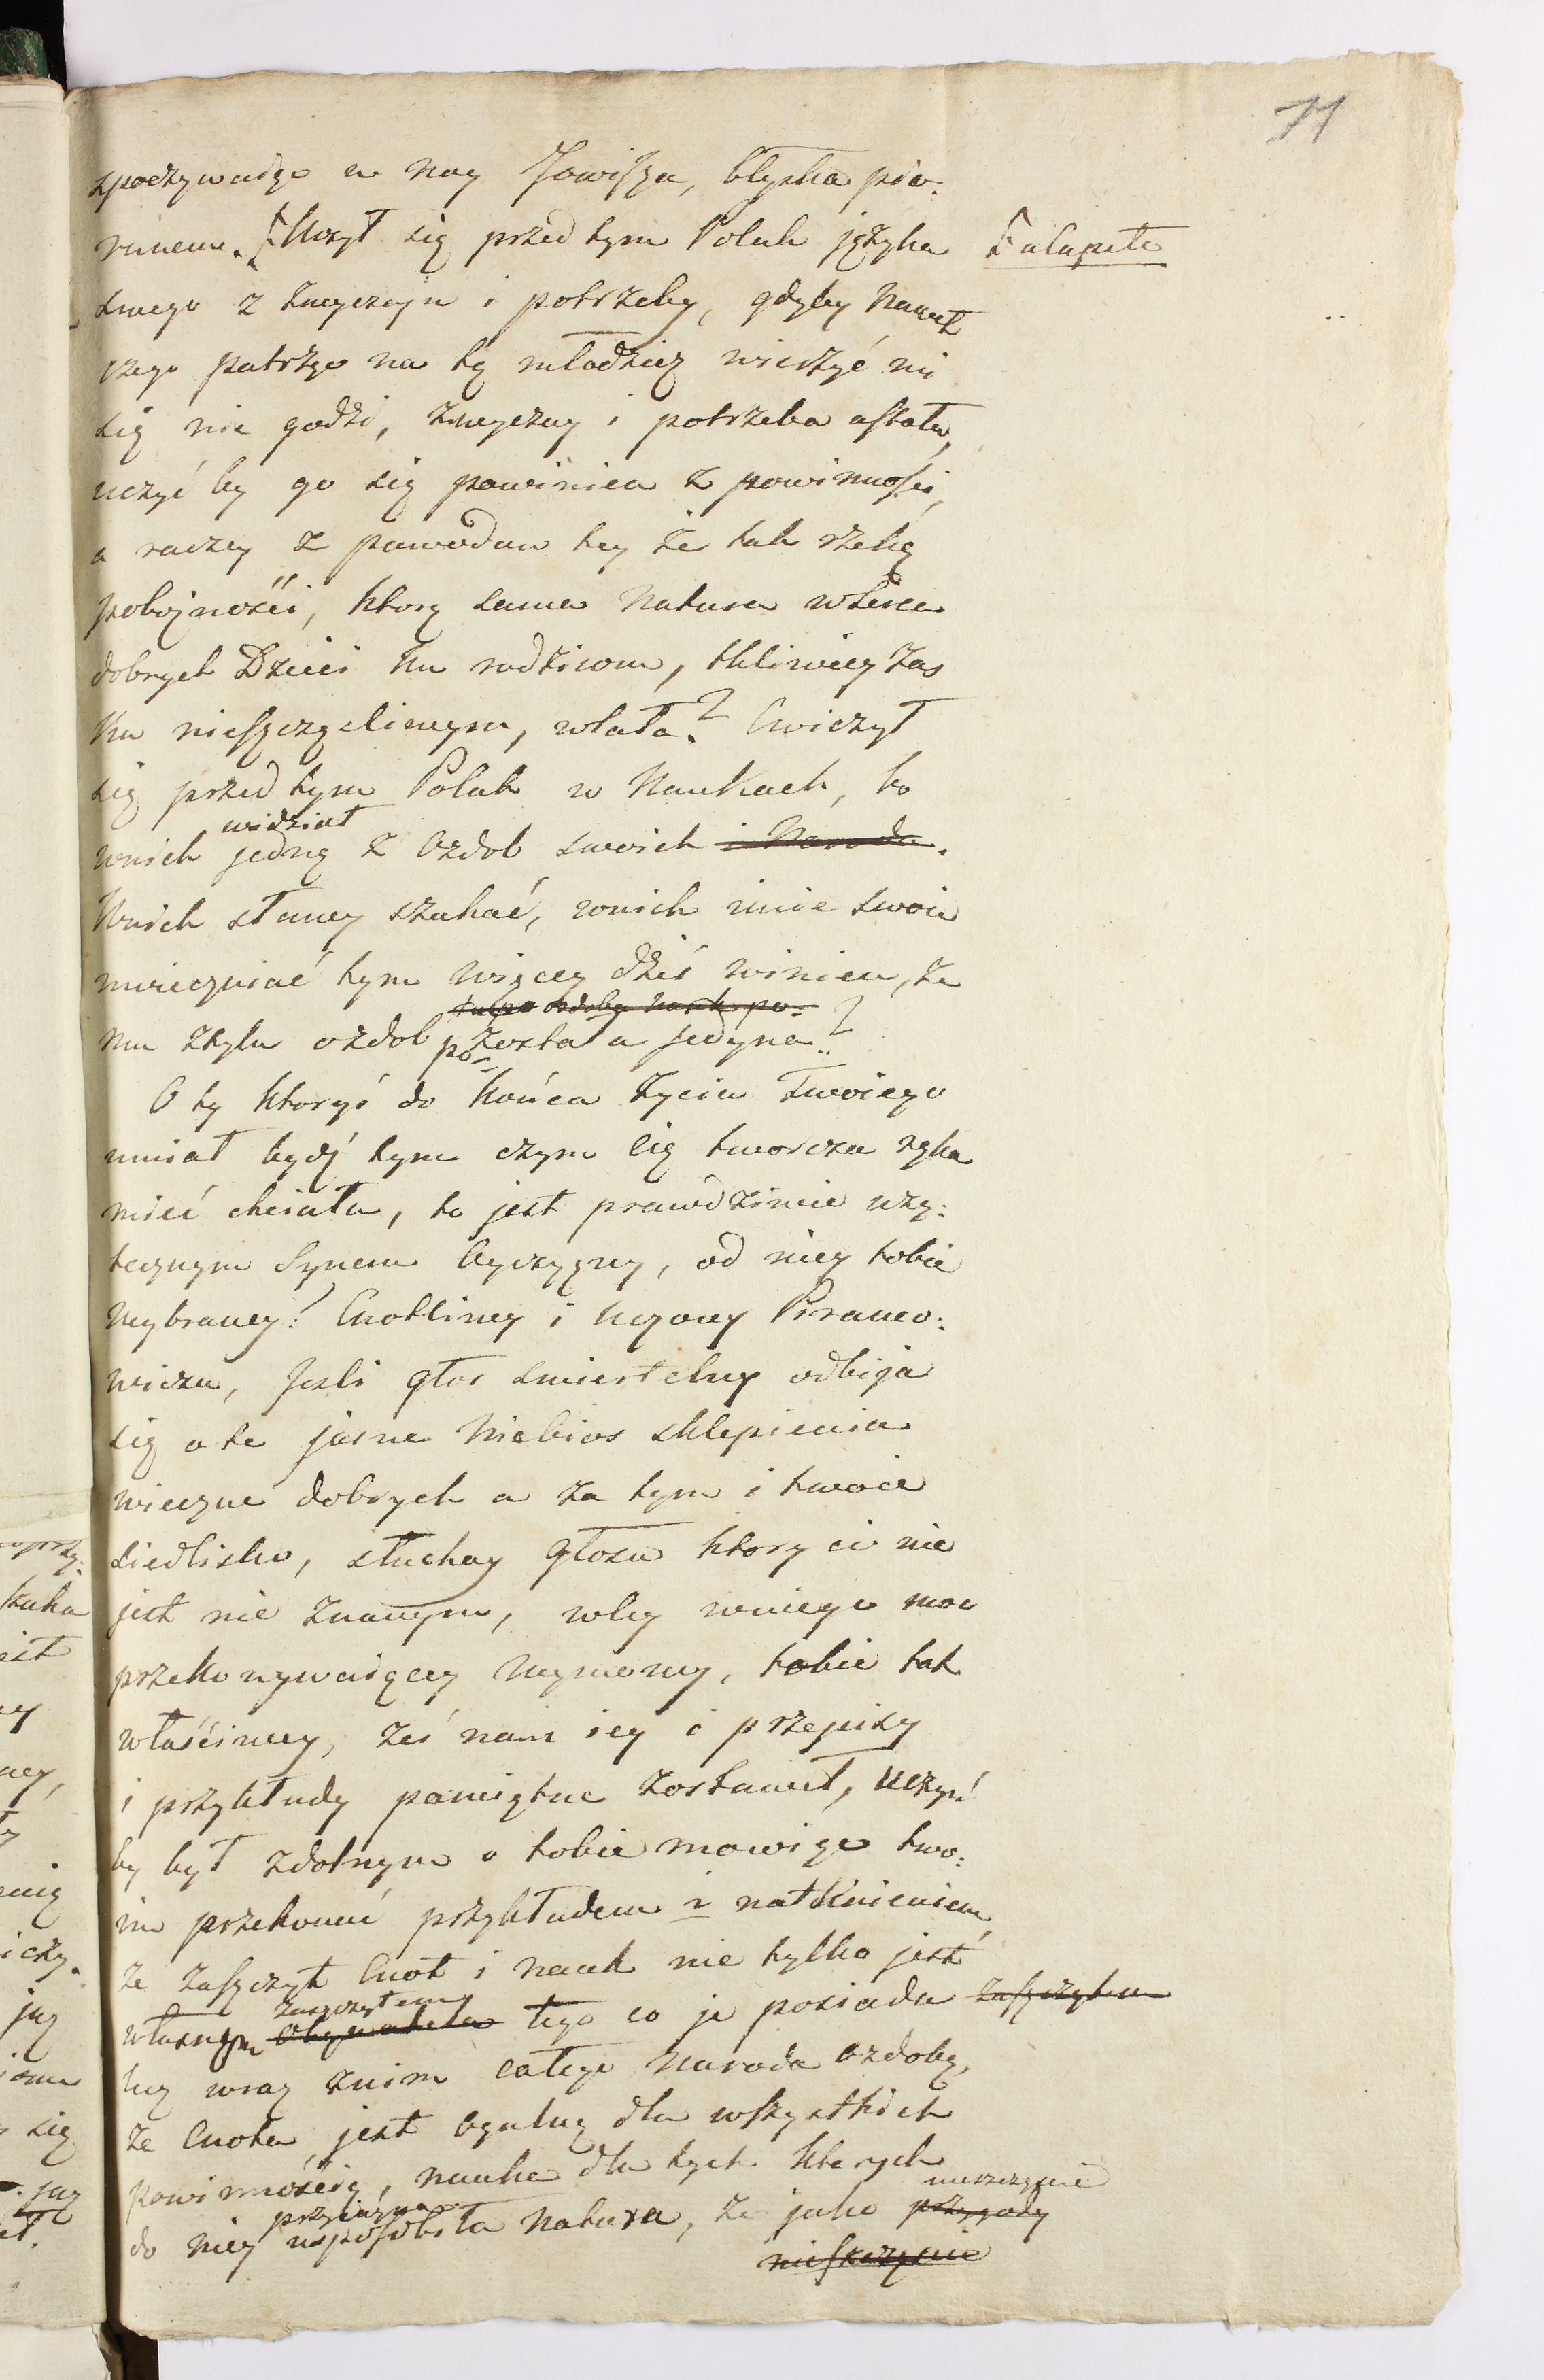 71
spoczywaiąc w nogy Jowisza, błyska pio:
runem. [Uczył się przed tym Polak języka
a capite
swego z zwyczaju i potrzeby, gdyby nawet
czego patrząc na tę młodzież wierzyć mi
się nie godzi, zwyczay i potrzeba ustała,
uczyć by go się powinien z powinności,
a raczey z powodow tey że tak rzekę
pobożności, ktorą sama natura w serca
dobrych Dzieci ku rodzicom, tkliwiey zas
ku nieszczęsliwym, wlała? Cwiczył
się przed tym Polak w Naukach, bo
widział
wnich jedną z Ozdob swoich i Narodu.
Wnich sławy szukać, wnich imie swoie
uwieczniać tym więcey dziś winien, że
tylko ozdoby nauk po=
mu ztylu ozdob po= została jedyna?
O ty ktoryś do końca życia Twoiego
umiał bydź tym czym cię tworcza ręka
mieć chciała, to jest prawdziwie uży:
tecznym Synem Oyczyzny, od niey tobie
wybraney! Cnotliwy i Uczony Piramo:
wiczu, Jesli głos smiertelny odbija
się o te jasne Niebios sklepienia
wieczne dobrych a za tym i twoie
siedlisko, słuchay głosu ktory ci nie
jest nie znanym, wley wniego moc
przekonywaiącey wymowy, tobie tak
właściwey, żeś nam iey i przepisy
i przykłady pamiętne zostawił, uczyń
by był zdolnym o tobie mowiąc two:
im przekonać przykładem i natknieniem,
że zaszczyt Cnot i nauk nie tylko jest
zaszczytem
własnym Obywatela tego co je posiada zaszczytem
lecz wraz znim całego Narodu ozdobą,
że Cnota jest ogulną dla wszystkich
powinnością, nauka dla tych ktorych
przyiazna
do niey usposobiła natura, że jako przygody
nieszczęscie